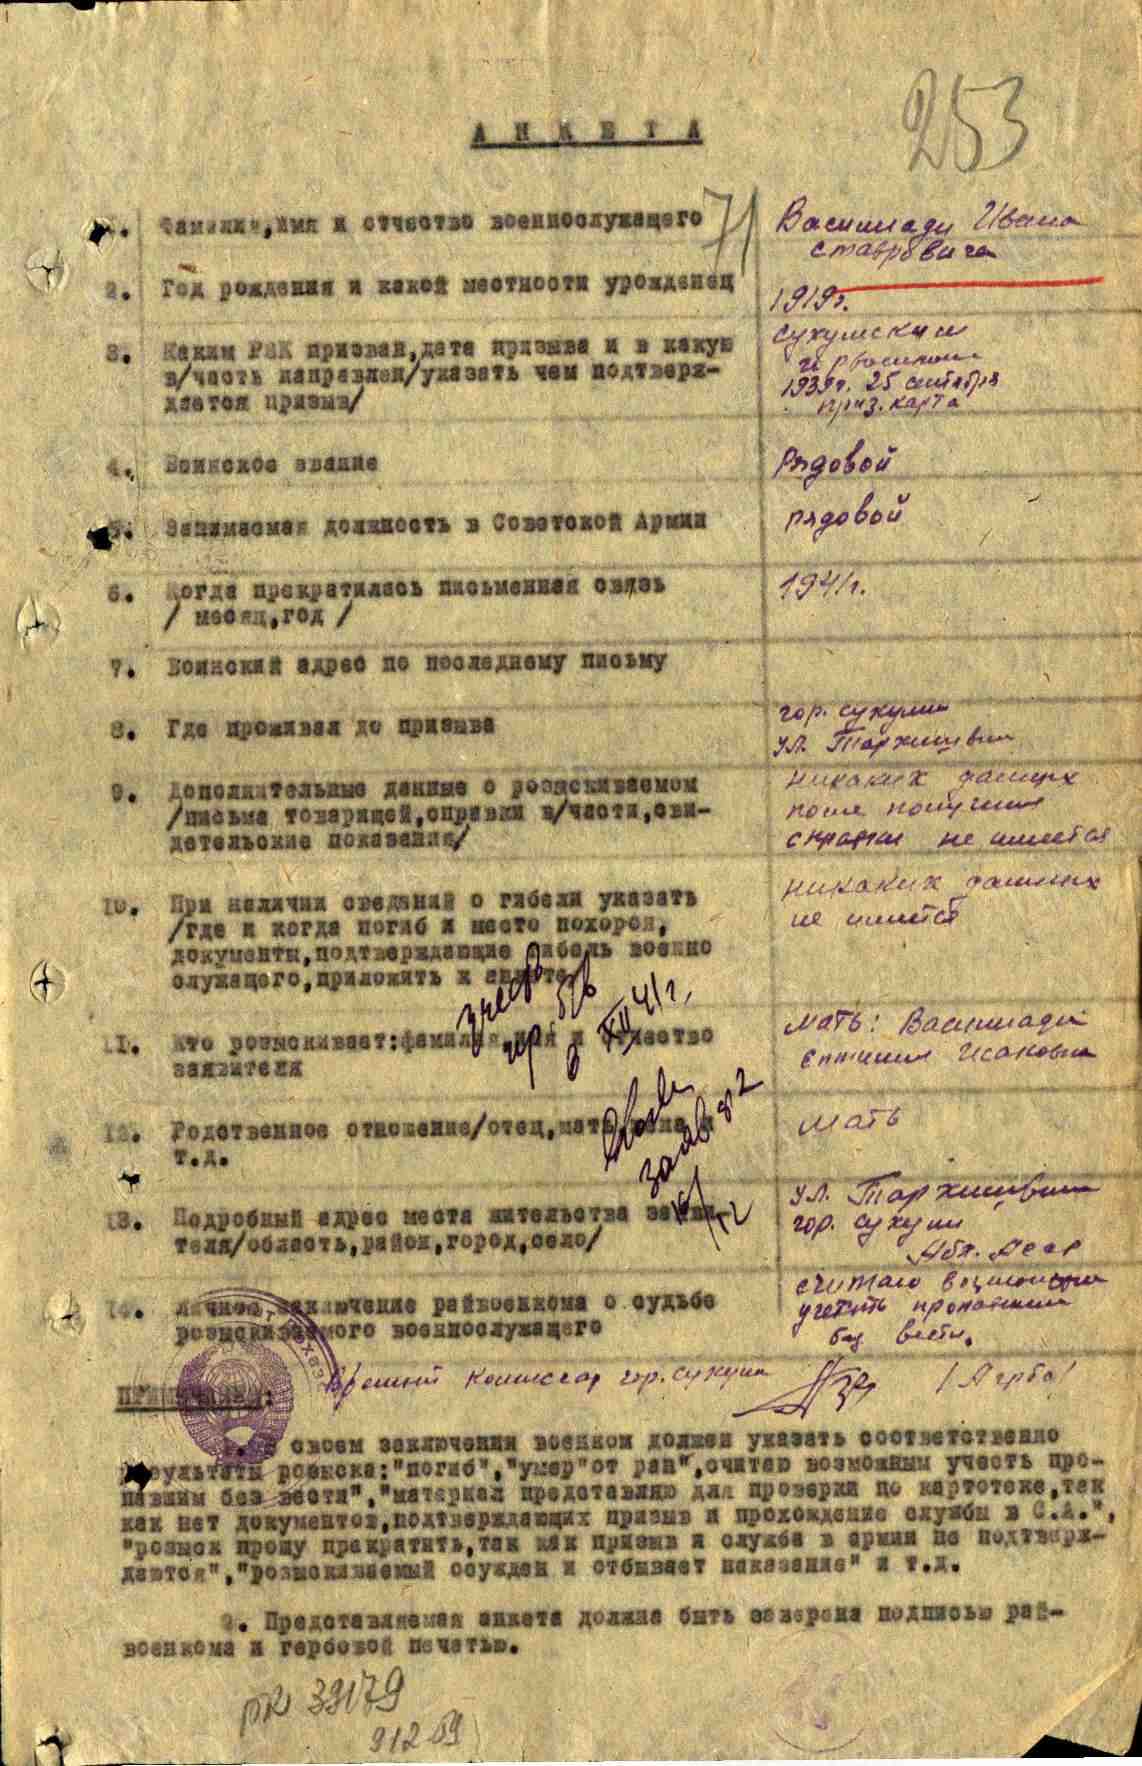 253
А Н К Е Т А
71
1. Фамилия,имя и отчество военнослужащего
Василиади Ивана
Ставровича
2. Год рождения и какой местности урожденец
1919г.
3. Каким РВК призван,дата призыва и в какую
в/часть направлен/указать чем подтверж-
дается призыв/
Сухумским
1939г. 25 сентября
приз. карта
4. Воинское звание
Рядовой
5. Занимаемая должность в Советской Армии
рядовой
6. Когда прекратилась письменная связь
/ месяц,год /
1941г.
7. Воинский адрес по последнему письму
8. Где проживал до призыва
гор. Сухуми
ул.
9. Дополнительные данные о розыскиваемом
/письма товарищей,справки в/части,сви-
детельские показания/
никаких данных
не имеется
10. При наличии сведений о гибели указать
/где и когда погиб и место похорон,
документы,подтверждающие гибель военно
служащего,приложить к анкете
никаких данных
не имеется
11. Кто розыскивает:фамилия,имя и отчество
заявителя
мать: Василиади
Исаковна
12. Родственное отношение/отец,мать,жена и
т.д.
мать
13. Подробный адрес места жительства заяви-
теля/область,район,город,село/
ул.
гор. Сухуми
Абх. АССР
14. Личное заключение райвоенкома о судьбе
розыскиваемого военнослужащего
считаю возможным
учесть пропавшим
без вести.
XII 41г.
Военный Комиссар гор. Сухуми /Агрба/
ПРИМЕЧАНИЕ:
1. В своем заключении военком должен указать соответственно
результаты розыска:"погиб","умер"от ран",считаю возможным учесть про-
павшим без вести","материал представляю для проверки по картотеке,так
как нет документов,подтверждающих призыв и прохождение службы в С.А.",
"розыск прошу прекратить,так как призыв и служба в армии не подтверж-
даются","розыскиваемый осужден и отбывает наказание" и т.д.
2. Представляемая анкета должна быть заверена подписью рай-
военкома и гербовой печатью.
39179